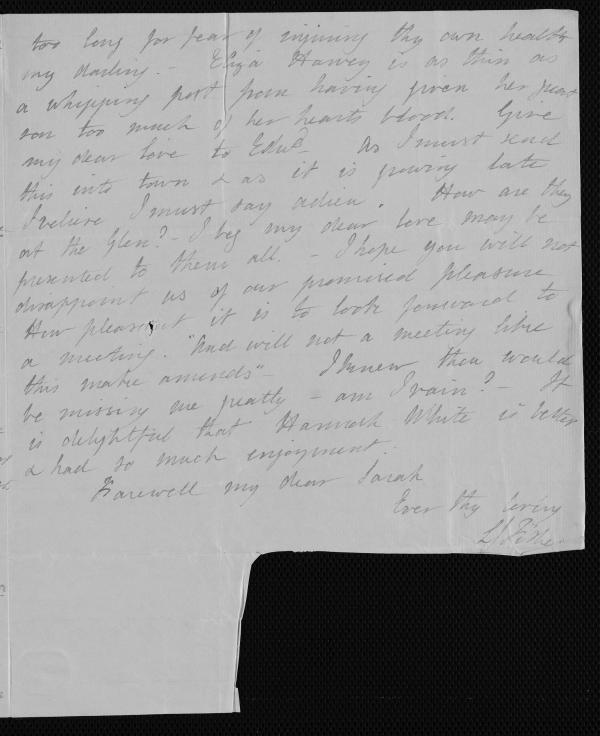 too long for fear of injuring thy own health
my darling. - Eliza Harvey is as thin as
a whipping post from having given her great
son too much of her hearts blood. Give
my dear love to Edwd. As I must send
this into town & as it is growing late
I believe I must say adieu. How are they
at the Glen? - I beg my dear love may be
presented to them all. - I hope you will not
disappoint us of our promised pleasure
How pleasant it is to look forward to
a meeting. "And will not a meeting like
this make amends" - I knew thou would
be missing me greatly - am I vain? - It
is delightful that Hannah White is better
& had so much enjoyment.
Farewell my dear Sarah
Ever thy loving